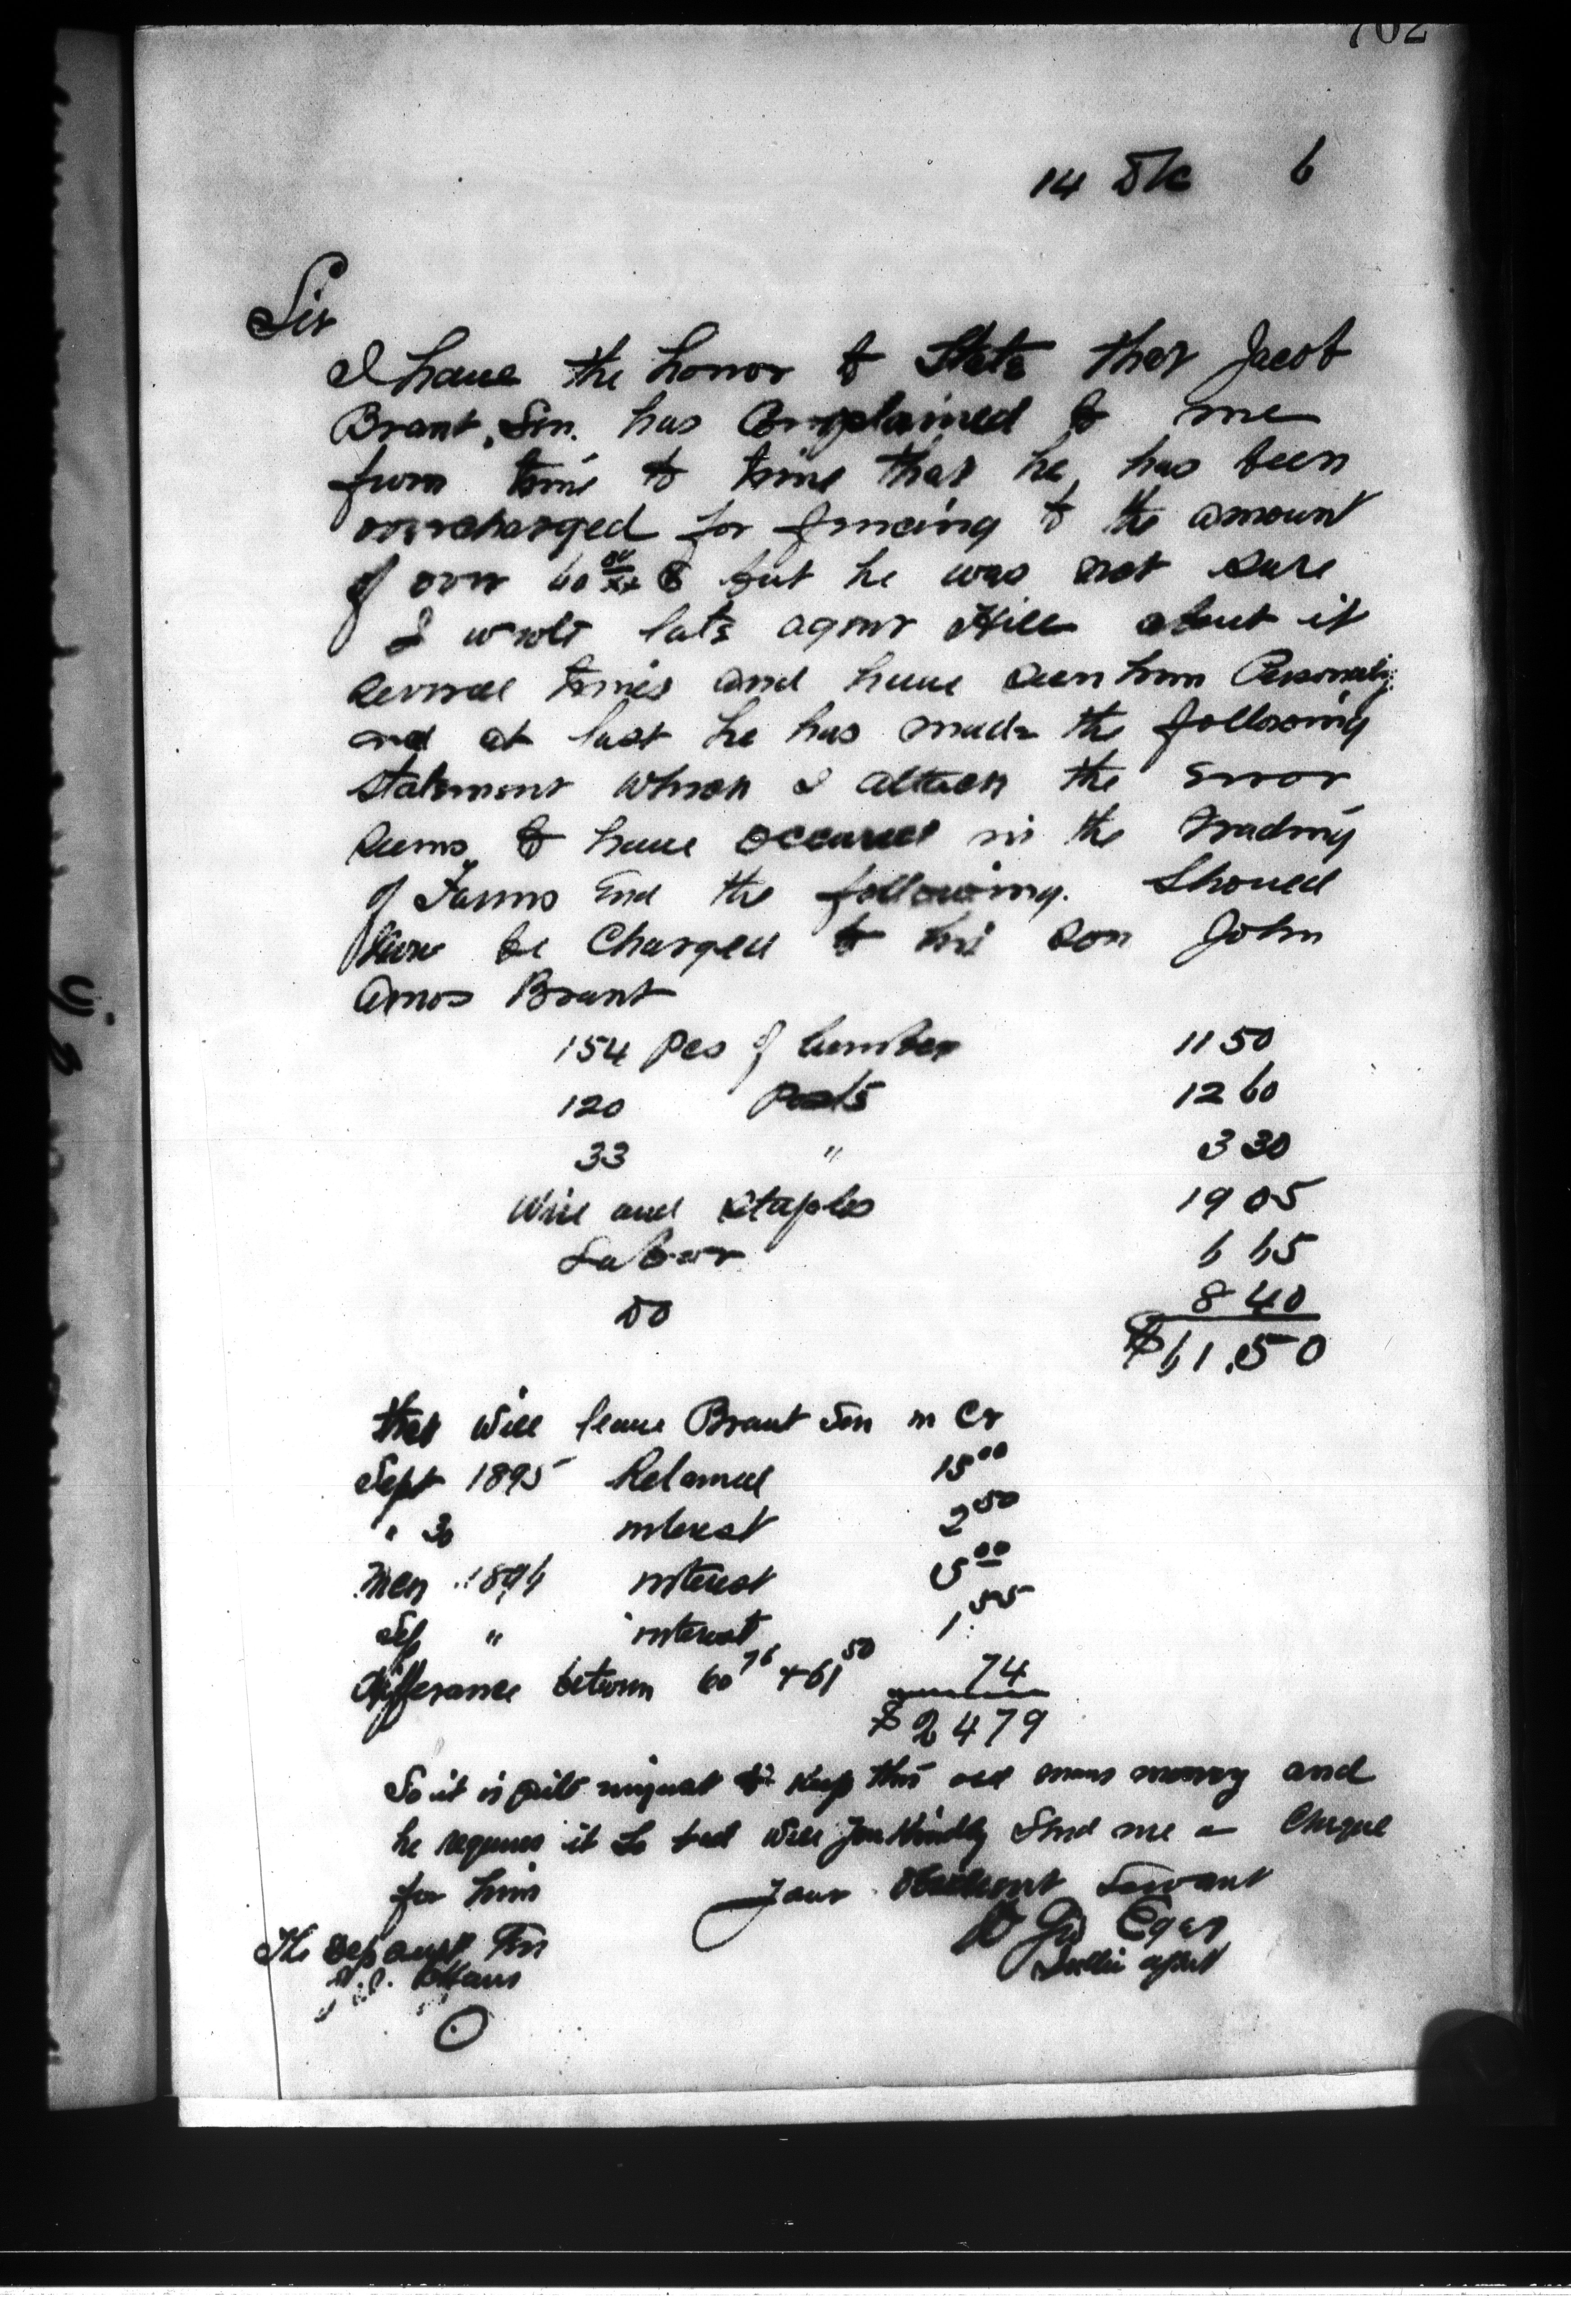 702
14 Dec 6
Sir
I have the honor to State that Jacob
Brant, Sen. has Complained to me
from time to time that he has been
overcharged for fencing to the amount
of over 60 but he was not sure
I wrote late agent Hill about it
several times and have seen him Personally
and at last he has made the following
statement which I attach the Error
seems to have occured in the trading
of Farms and the following. Should
have be Charged to his son John
Amos Brant
154 pcs of lumber 11 50
120 Posts 12 60
33 " 3 30
Wire and staples 19 05
Labour 6 65
DO 8 40
$61.50
that will leave Brant Sen in Cr
Sept 1895 Retained 15 00
" 30 interest 2 50
1896 interest 5 00
Sep " interest 1.55
differance between 60 76 + 61 50 74
$24 79
So it is quite unjust to keep this old mans money and
he requires it so bad Will you Kindly Send me a Cheque
for him Your Obedient Servant
Egar
Indian agent
The Dep
Ottawa